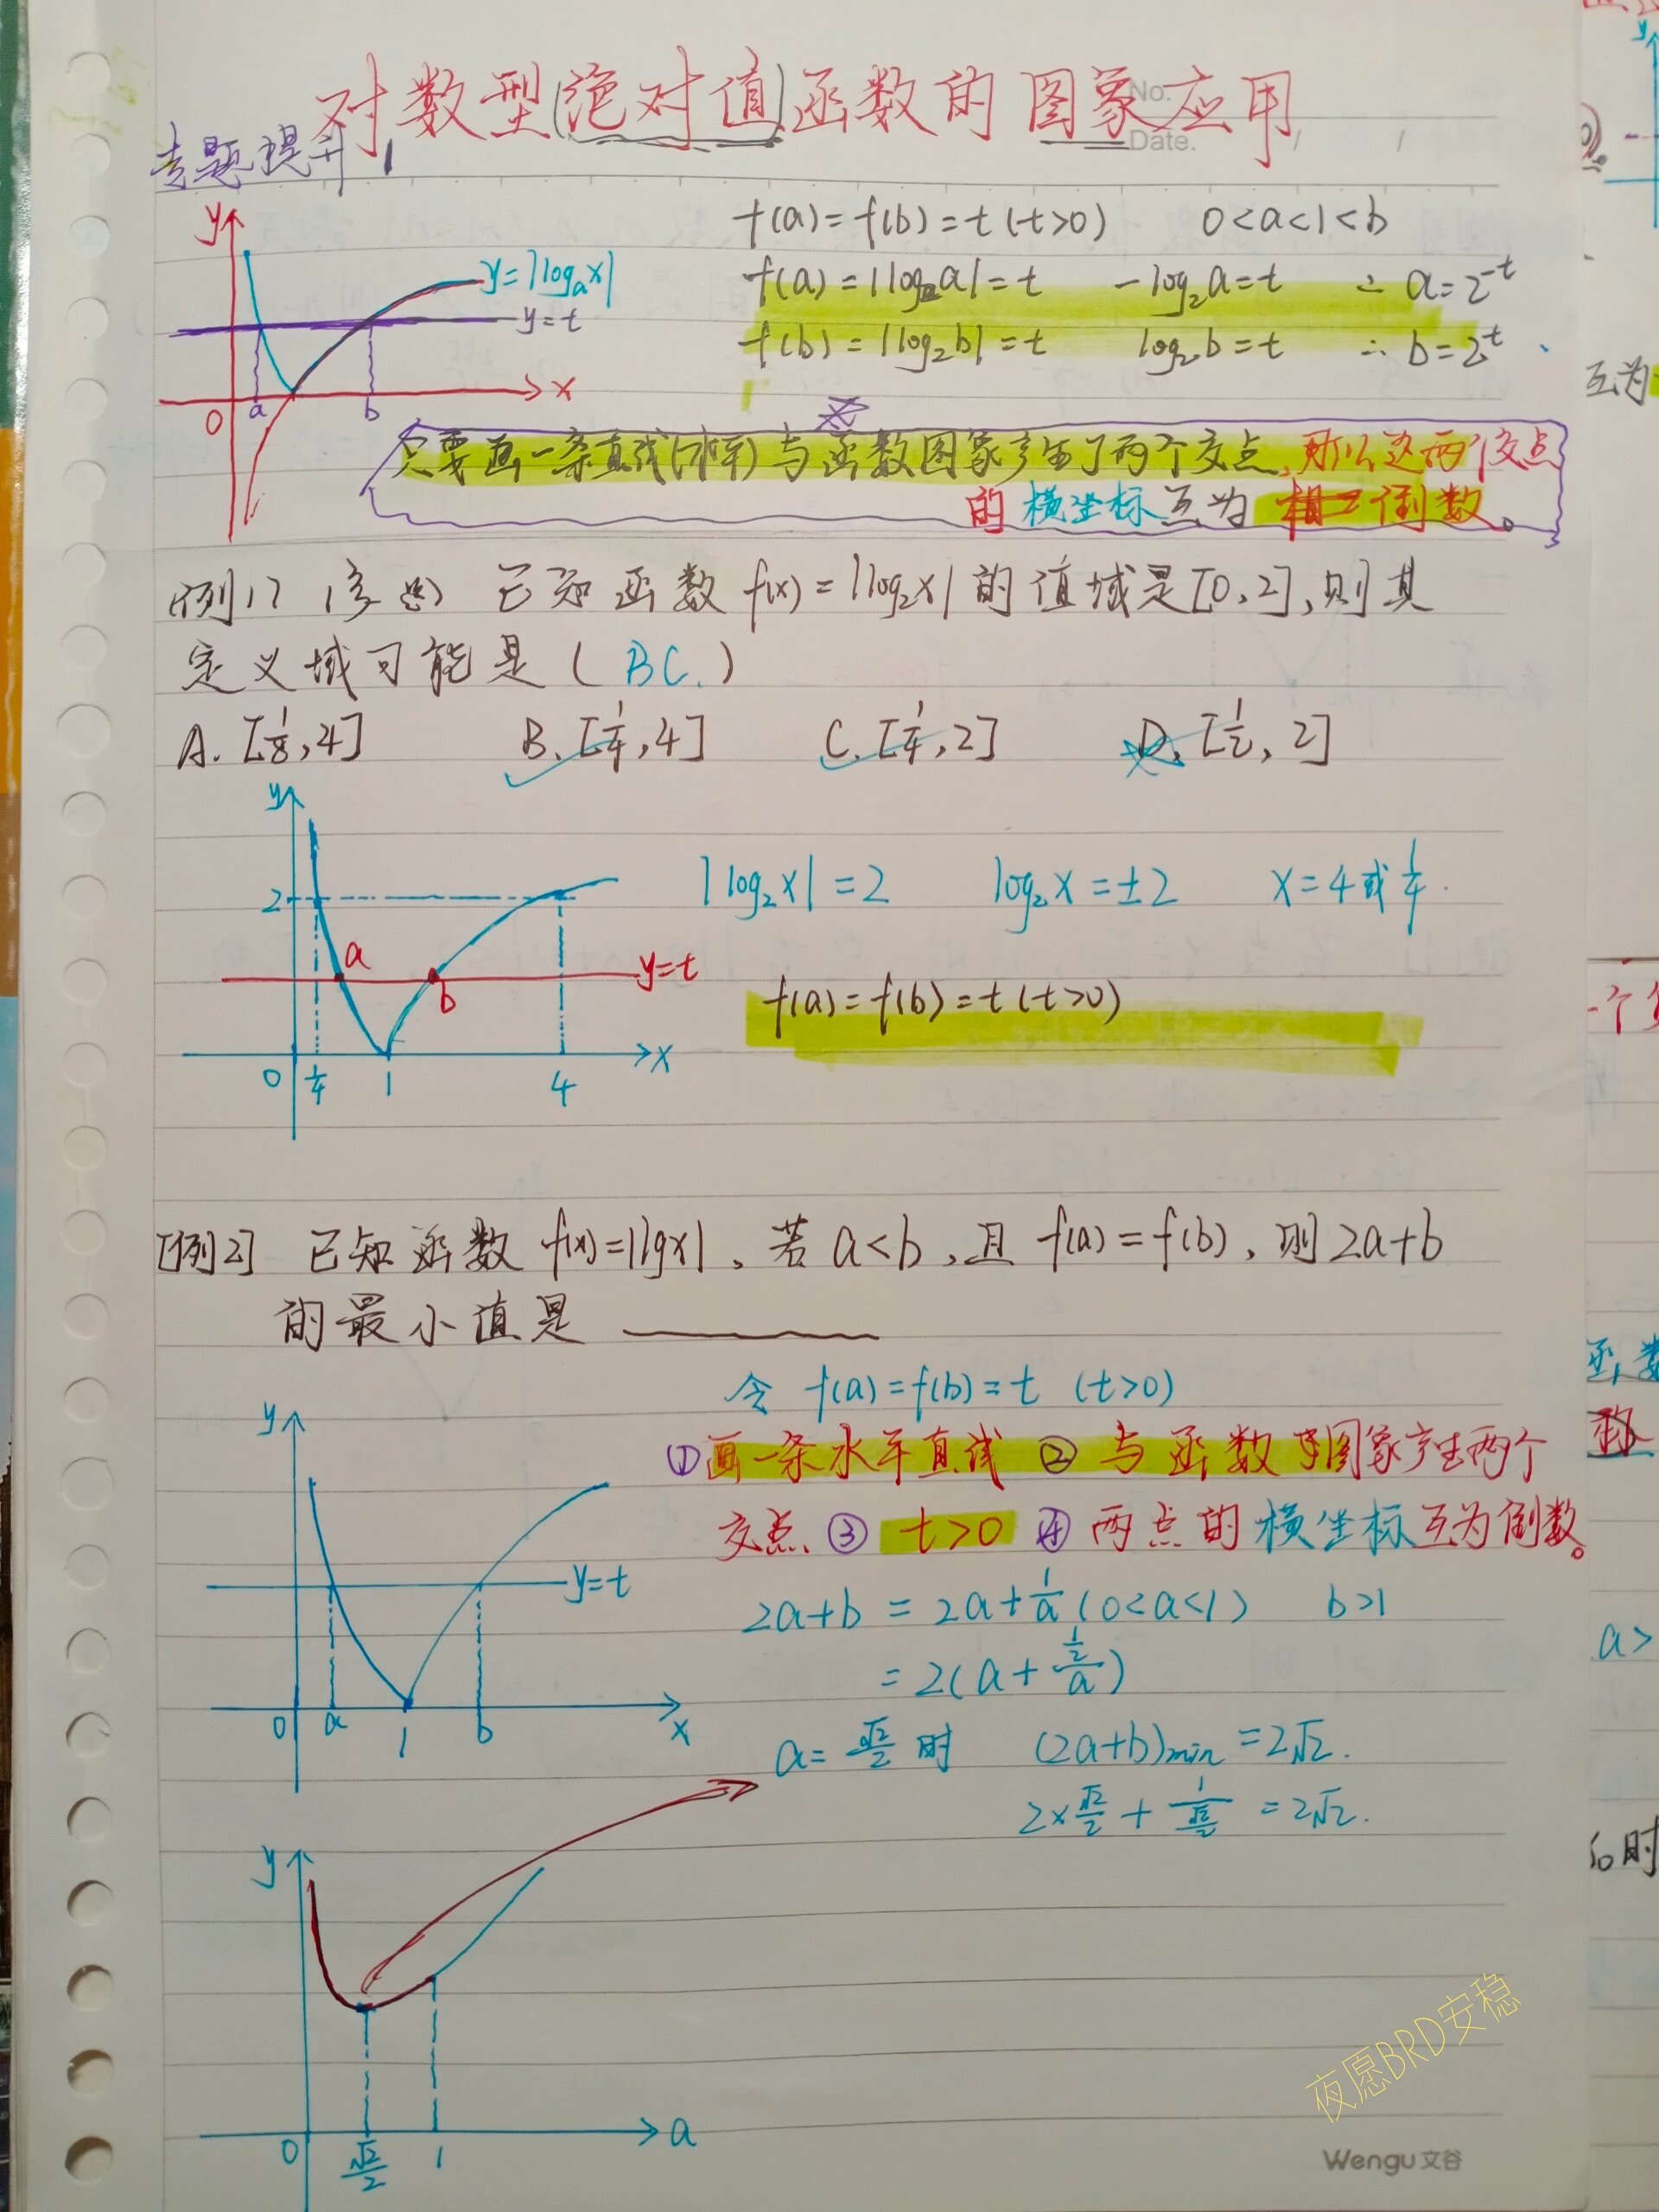 对数型(绝对值)函数的图象应用
No.
Date.
专题提升1
f(a)=f(b)=t(t>0) 0<a<1<b
y
y=|logₐx|
f(a)=|log₂a|=t -log₂a=t ∴a=2⁻ᵗ
y=t
f(b)=|log₂b|=t log₂b=t ∴b=2ᵗ
0 a b x
只要画一条直线(水平)与函数图象产生了两个交点,所以这两个交点
的横坐标互为 倒数。
[例1] (多选) 已知函数f(x)=|log₂x|的值域是[0,2],则其
定义域可能是(BC.)
A.[1/8,4] B.[1/4,4] C.[1/4,2] D.[1/2,2]
y
2
|log₂x|=2 log₂x=±2 x=4或1/4.
a b y=t
f(a)=f(b)=t(t>0)
0 1/4 1 4 x
[例2] 已知函数f(x)=|lgx|,若a<b,且f(a)=f(b),则2a+b
的最小值是
令f(a)=f(b)=t (t>0)
①画一条水平直线②与函数图象产生两个
交点③t>0④两点的横坐标互为倒数。
y
y=t
2a+b=2a+1/a(0<a<1) b>1
=2(a+(1/2)/a)
0 a 1 b x
a=√2/2时 (2a+b)min=2√2.
2×√2/2+1/(√2/2)=2√2.
y
0 √2/2 1 a
夜愿BRD安稳
Wengu文谷
互为
一个
函数
称
a>
时